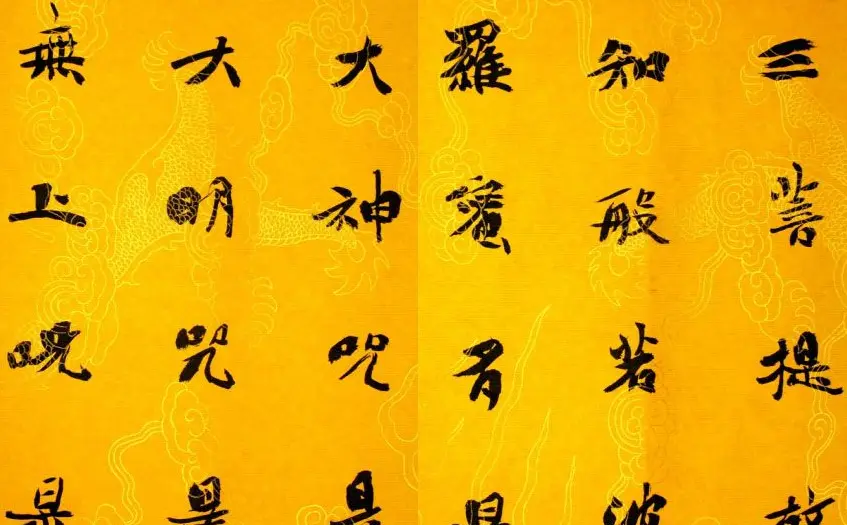 三菩提故
知般若波
羅蜜多是
大神咒是
大明咒是
無上呪是